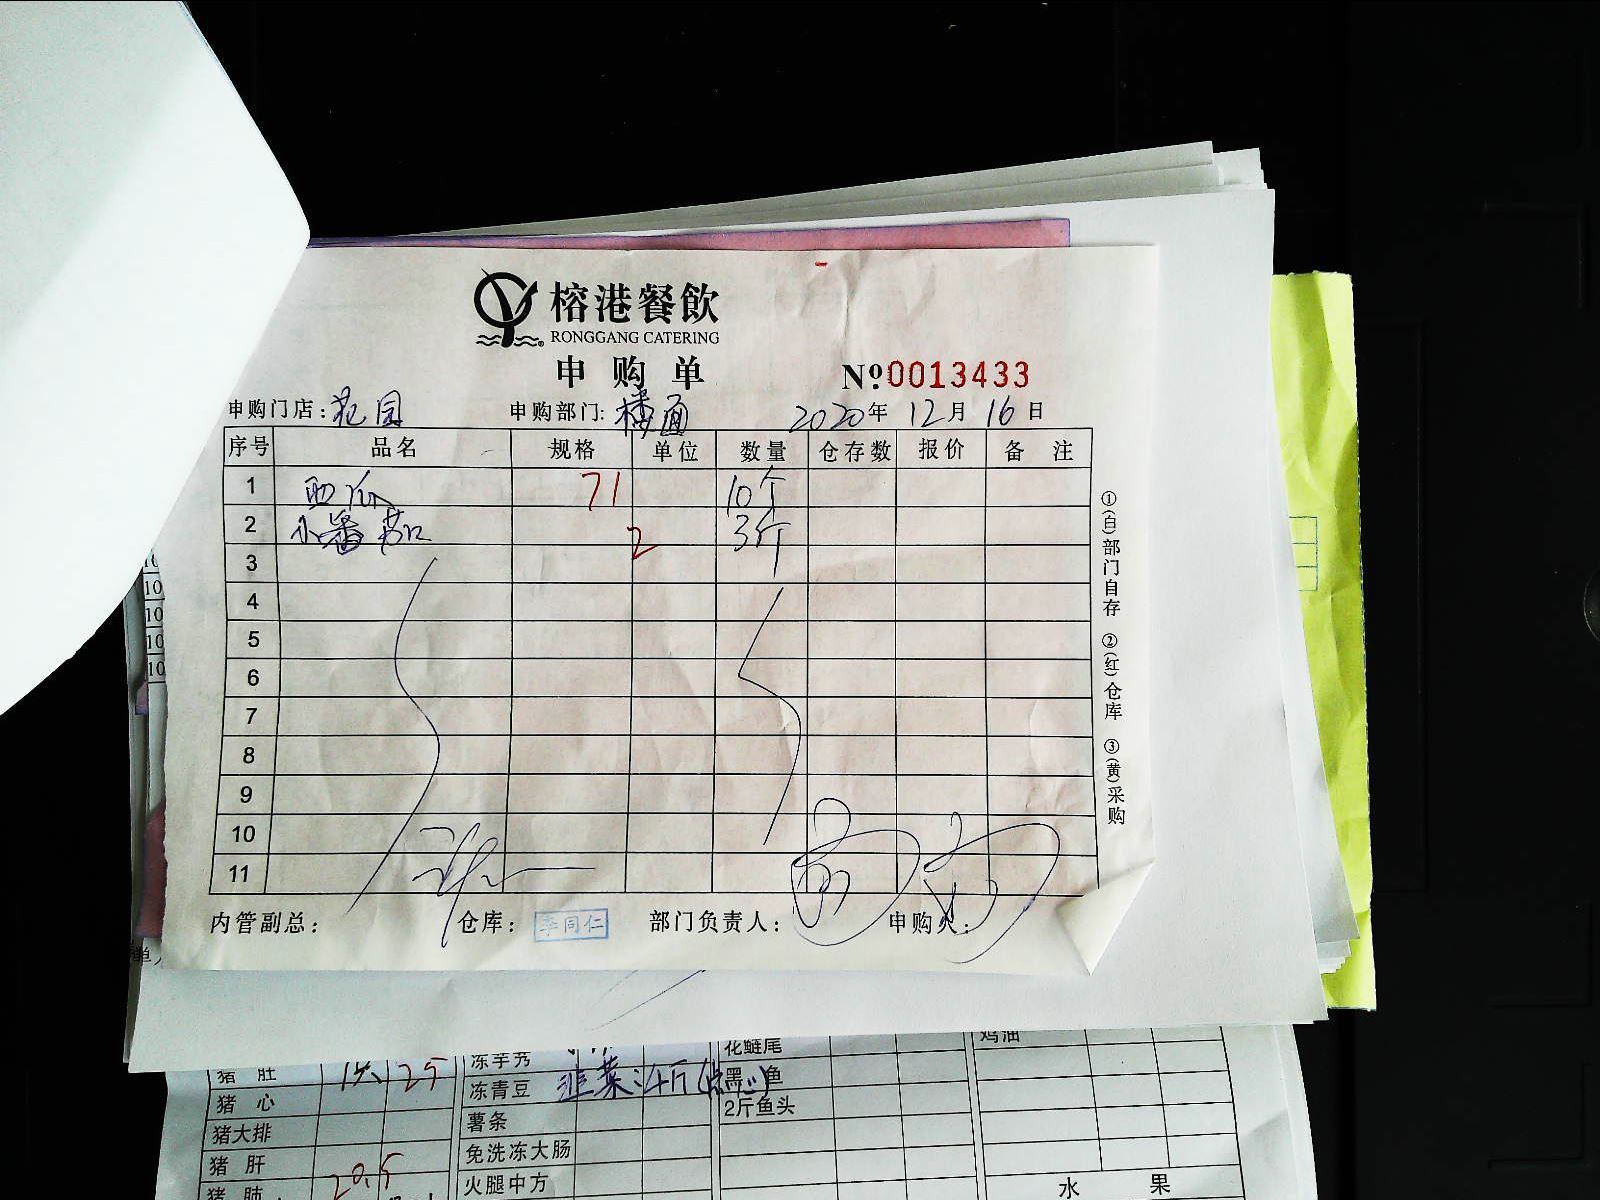 榕港餐飲
RONGGANG CATERING
申购单
№0013433
申购门店：花园 申购部门：楼面 2020年12月16日
序号 品名 规格 单位 数量 仓存数 报价 备注
1 西瓜 71 10个
2 小番茄 2 3斤
3
4
5
6
7
8
9
10
11
内管副总： 仓库：李同仁 部门负责人： 申购人：
①(白)部门自存 ②(红)仓库 ③(黄)采购
10
10
10
10
10
单人
猪肚 25 冻芋艿 花鲢尾 鸡油
猪心 冻青豆 韭菜:4斤(点心) 黑鱼
猪大排 薯条 2斤鱼头
猪肝 免洗冻大肠
猪肺 20.5 火腿中方 水果